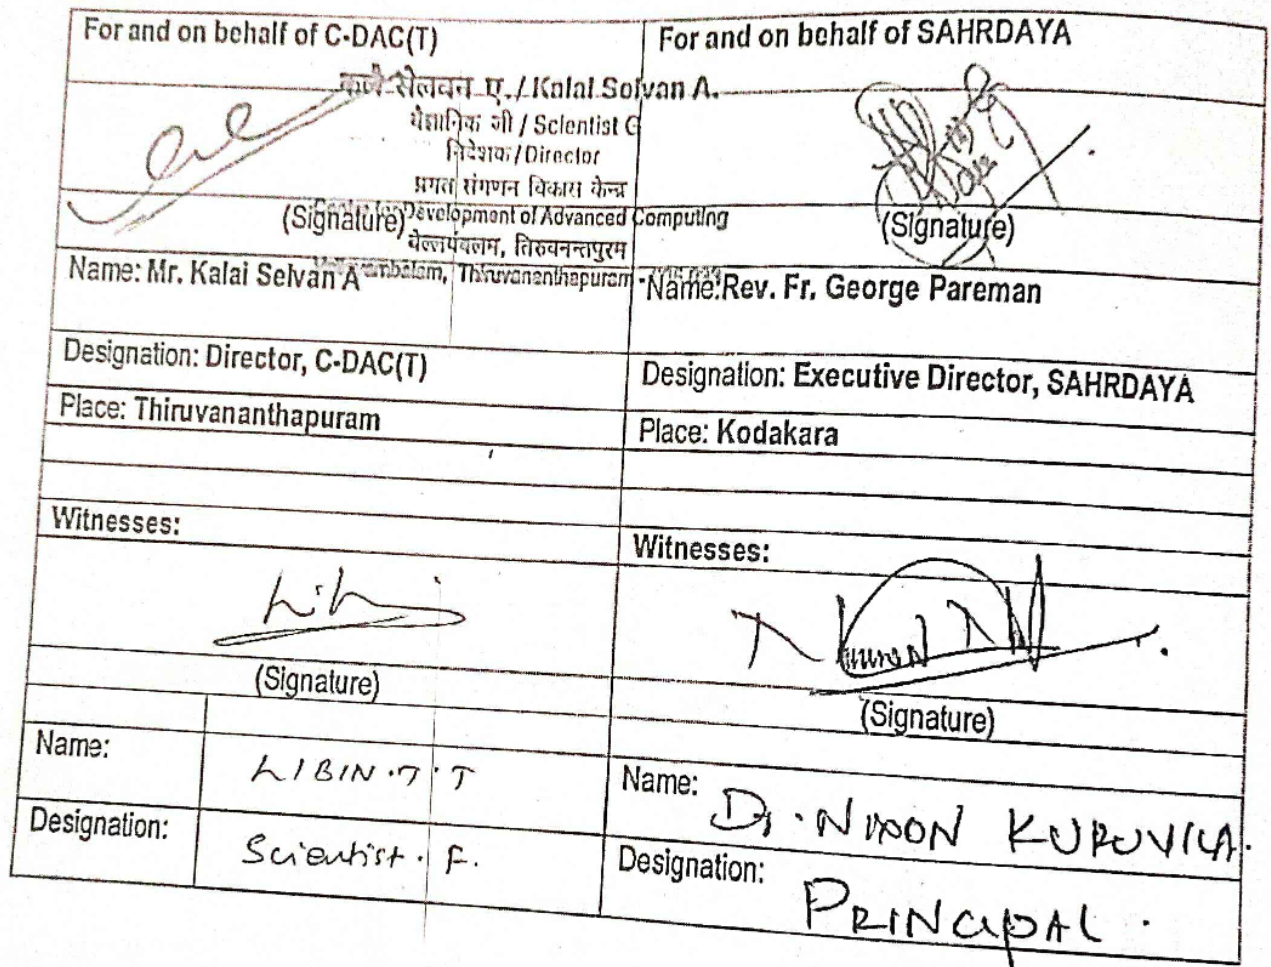 For and on behalf of C-DAC(T)
For and on behalf of SAHRDAYA
सेलवन ए./Kalai Selvan A.
वैज्ञानिक जी / Scientist G
निदेशक/Director
प्रगत संगणन विकास केन्द्र
(Signature) Development of Advanced Computing
(Signature)
वेल्लयंबलम, तिरुवनन्तपुरम
Name: Mr. Kalai Selvan A
Thiruvananthapuram
Name: Rev. Fr. George Pareman
Designation: Director, C-DAC(T)
Designation: Executive Director, SAHRDAYA
Place: Thiruvananthapuram
Place: Kodakara
Witnesses:
Witnesses:
(Signature)
(Signature)
Name: LIBIN.T.T
Name: Dr. NIXON KURUVILA.
Designation: Scientist. F.
Designation: PRINCIPAL.